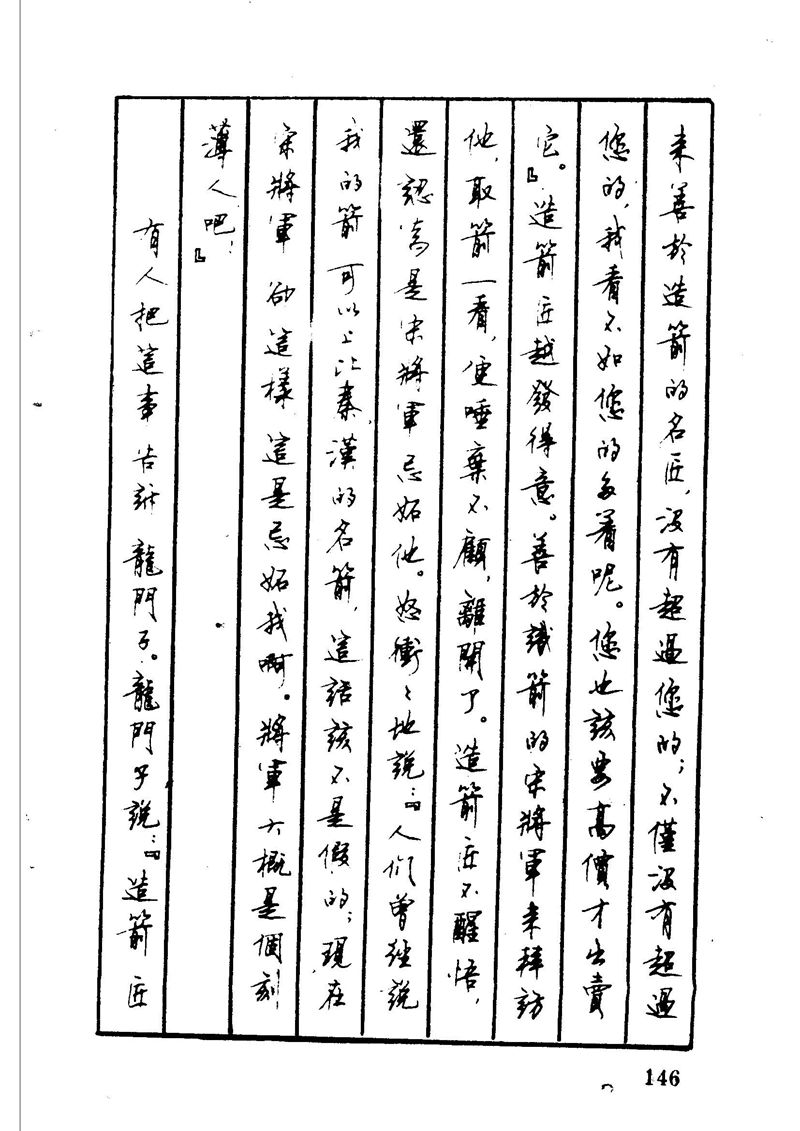 来善於造箭的名匠，沒有超過您的；不僅沒有超過
您的，我看不如您的多着呢。您也該要高價才出賣
它。』造箭匠越發得意。善於識箭的宋將軍来拜訪
他，取箭一看，便唾棄不顧，離開了。造箭匠不醒悟，
還認為是宋將軍忌妬他。怒衝〻地説：『人们曾經説
我的箭可以上比秦、漢的名箭，這話該不是假的；現在
宋將軍卻這樣這是忌妬我啊。將軍大概是個刻
薄人吧！』
有人把這事告訴龍門子。龍門子説：『造箭匠
146